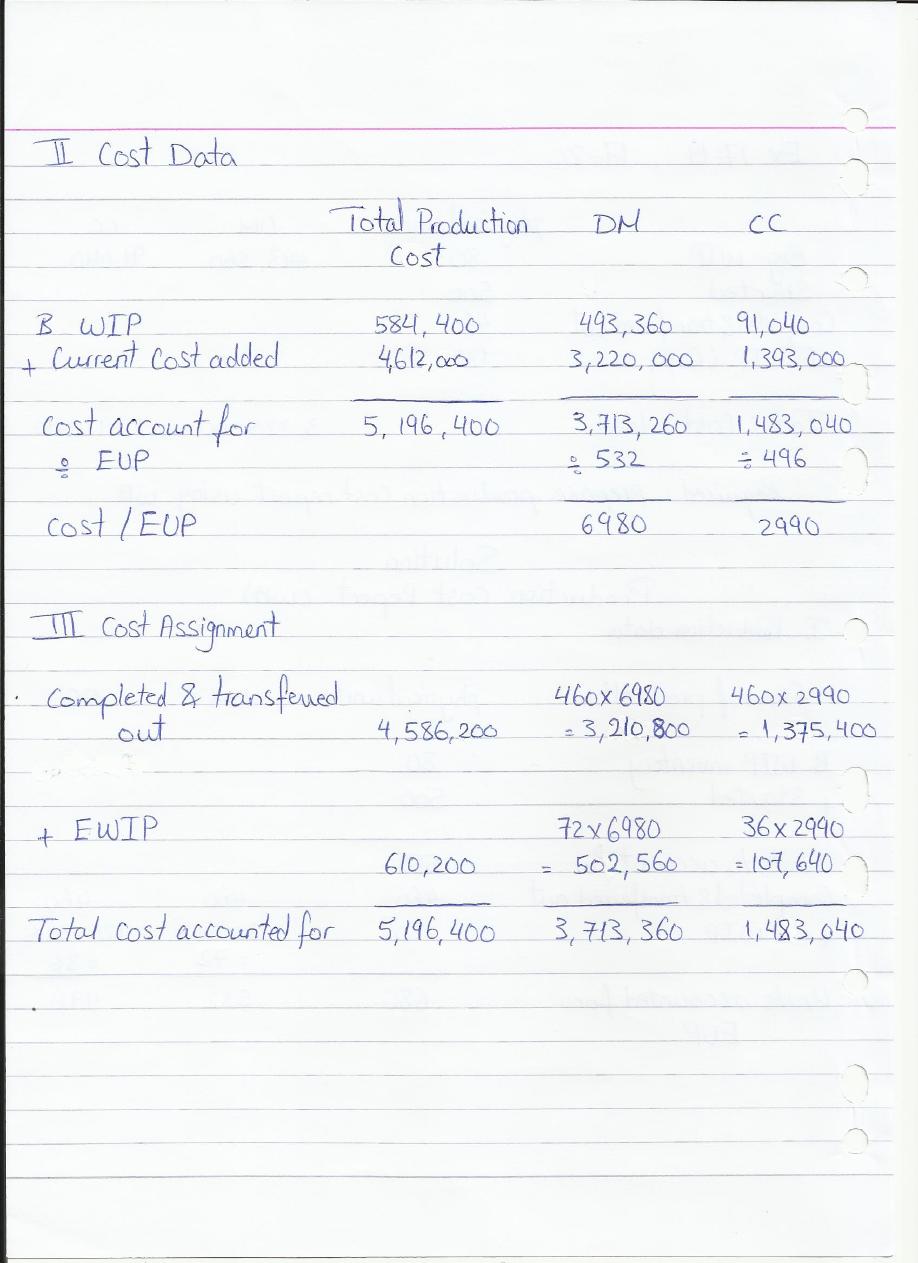 II Cost Data
Total Production DM CC
Cost
B WIP 584,400 493,360 91,040
+ Current Cost added 4,612,000 3,220,000 1,393,000
Cost account for 5,196,400 3,713,260 1,483,040
÷ EUP ÷ 532 ÷ 496
Cost / EUP 6980 2990
III Cost Assignment
Completed & transferred 460x6980 460x2990
out 4,586,200 = 3,210,800 = 1,375,400
+ EWIP 72x6980 36x2990
610,200 = 502,560 = 107,640
Total cost accounted for 5,196,400 3,713,360 1,483,040